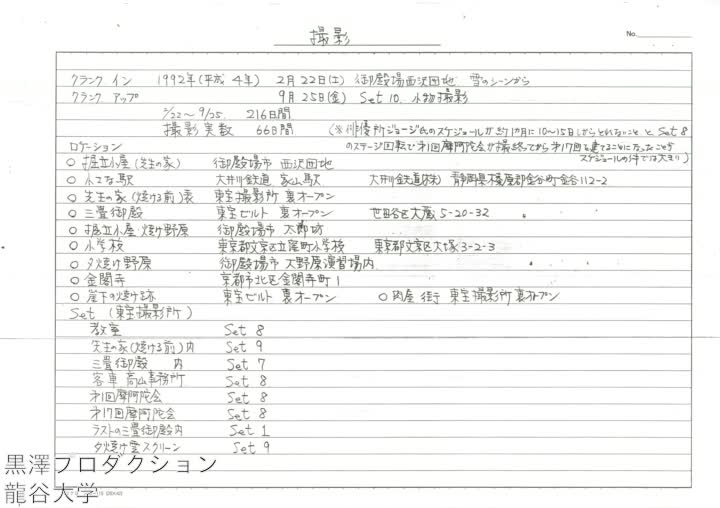 撮影
No.
クランク イン 1992年(平成 4年) 2月22日(土) 御殿場西沢団地 雪のシーンから
クランク アップ 9月25日(金) Set 10. 小物撮影
2/22～9/25. 216日間
撮影実数 66日間 (※俳優所ジョージ氏のスケジュールが約1カ月に10～15日しかとれないこと と Set 8
のステージ回転で第1回摩阿陀会が撮終ってから第17回を建てることになったことが
ロケーション スケジュールの件では大きい)
○ 掘立小屋(先生の家) 御殿場市 西沢団地
○ 小さな駅 大井川鉄道 家山駅 大井川鉄道(株) 静岡県榛原郡金谷町金谷112-2
○ 先生の家(焼ける前)表 東宝撮影所 裏オープン
○ 三畳御殿 東宝ビルト 裏オープン 世田谷区大蔵 5-20-32
○ 掘立小屋・焼け野原 御殿場市 太郎坊
○ 小学校 東京都文京区立窪町小学校 東京都文京区大塚3-2-3
○ 夕焼け野原 御殿場市 大野原演習場内
○ 金閣寺 京都市北区金閣寺町1
○ 崖下の焼け跡 東宝ビルト 裏オープン ○ 肉屋 街 東宝撮影所裏オープン
Set (東宝撮影所)
教室 Set 8
先生の家(焼ける前)内 Set 9
三畳御殿 内 Set 7
客車 高山事務所 Set 8
第1回摩阿陀会 Set 8
第17回摩阿陀会 Set 8
ラストの三畳御殿内 Set 1
夕焼け雲スクリーン Set 9
黒澤プロダクション
龍谷大学